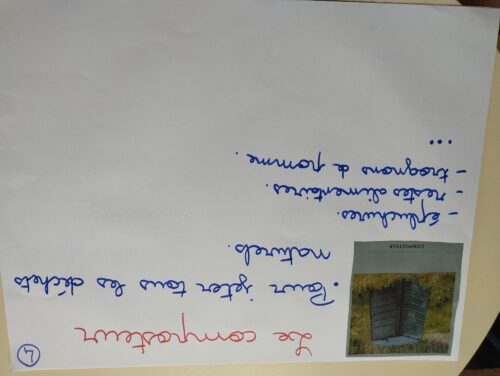 4
Le composteur
. Pour jeter tous les déchets
naturels.
COMPOSTEUR
- Épluchures.
- restes alimentaires.
- trognons de pomme.
...